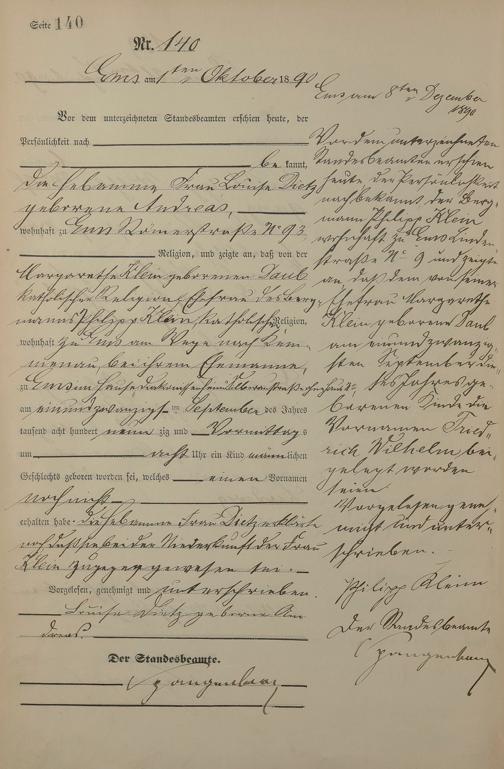 Seite 140
Nr. 140
Ems am 1ten Oktober 1890
Vor dem unterzeichneten Standesbeamten erschien heute, der
Persönlichkeit nach
be kannt,
die Hebamme Frau Louise Dietz
geborene Andreas,
wohnhaft zu Ems Römerstraße No 93
Religion, und zeigte an, daß von der
Margarethe Klein geborenen Paul
katholischer Religion, Ehefrau des Berg-
manns Philipp Klein, katholischer Religion,
wohnhaft zu Ems am Wege nach Kem-
menau bei ihrem Ehemanne,
zu Ems im Hause
am einundzwanzigsten September des Jahres
tausend acht hundert neunzig und Vormittags
um acht Uhr ein Kind männlichen
Geschlechts geboren worden sei, welches einen Vornamen
noch nicht
erhalten habe. Die Hebamme Frau Dietz erklärte
noch daß sie bei der Niederkunft der Frau
Klein zugegen gewesen sei.
Vorgelesen, genehmigt und unterschrieben.
Louise Dietz geborene An
dreas.
Der Standesbeamte.
Spangenberg
Ems am 8ten Dezember
1890
Vor dem unterzeichneten
Standesbeamten erschien
heute der Persönlichkeit
nach bekannt der Berg-
mann Philipp Klein
wohnhaft zu Ems Linden
straße No 9 und zeigte
an, daß dem von seiner
Ehefrau Margarethe
Klein geborene Paul
am einundzwanzig-
sten September die-
ses Jahres ge-
borenen Kinde die
Vornamen Fried-
rich Wilhelm bei-
gelegt worden
seien
Vorgelesen geneh-
migt und unter-
schrieben.
Philipp Klein
Der Standesbeamte
Spangenberg